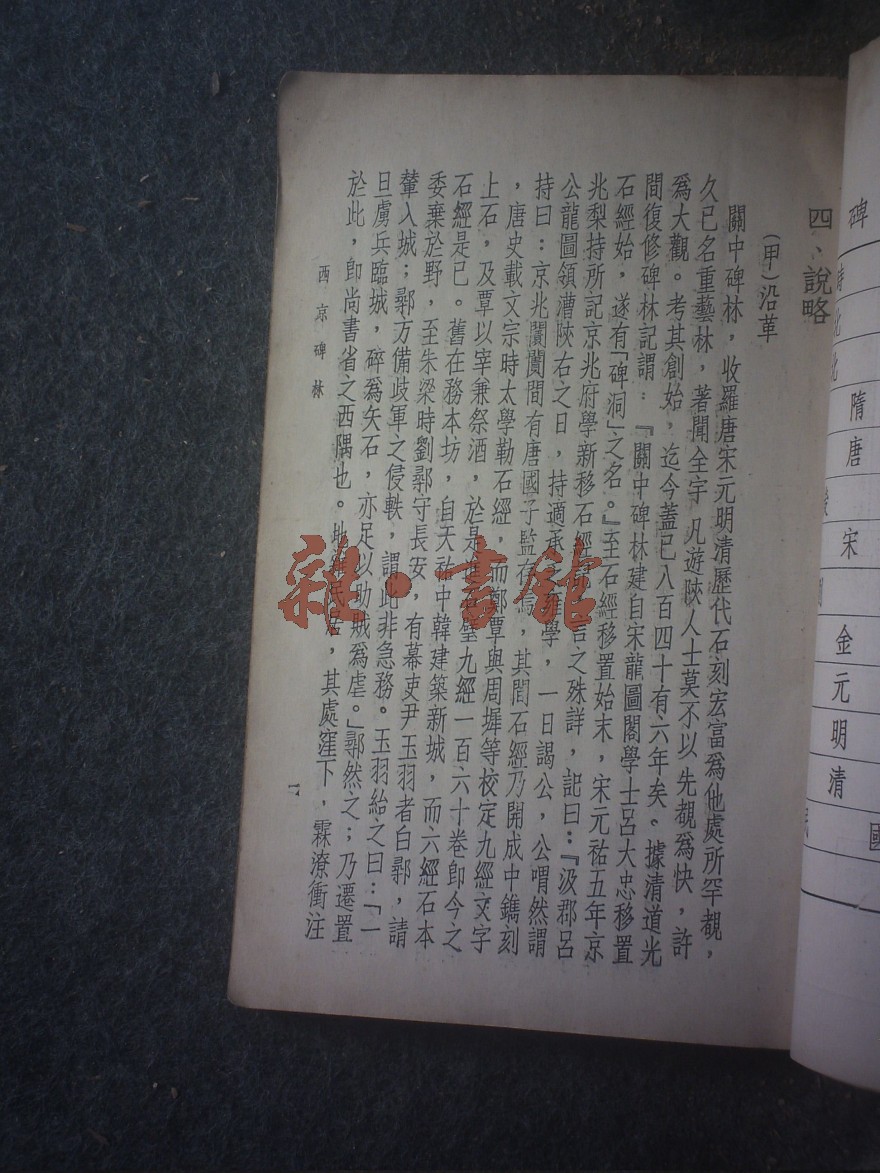 四、說略
(甲)沿革
關中碑林，收羅唐宋元明清歷代石刻宏富爲他處所罕覩，
久已名重藝林，著聞全宇，凡遊陝人士莫不以先覩爲快，許
爲大觀。考其創始，迄今蓋已八百四十有六年矣。據清道光
間復修碑林記謂：『關中碑林建自宋龍圖閣學士呂大忠移置
石經始，遂有「碑洞」之名。』至石經移置始末，宋元祐五年京
兆黎持所記京兆府學新移石經記言之殊詳，記曰：『汲郡呂
公龍圖領漕陝右之日，持適承雍學，一日謁公，公喟然謂
持曰：京兆闤闠間有唐國子監存焉，其間石經乃開成中鐫刻
，唐史載文宗時太學勒石經，而鄭覃與周墀等校定九經文字
上石，及覃以宰兼祭酒，於是進石壁九經一百六十卷卽今之
石經是已。舊在務本坊，自天祐中韓建築新城，而六經石本
委棄於野，至朱梁時劉鄩守長安，有幕吏尹玉羽者白鄩，請
輦入城；鄩方備歧軍之侵軼，謂此非急務。玉羽紿之曰：「一
旦虜兵臨城，碎爲矢石，亦足以助賊爲虐。」鄩然之；乃遷置
於此，卽尚書省之西隅也。地雜民居，其處窪下，霖潦衝注
西京碑林
雜·書館
碑
隋
唐
宋
金
元
明
清
國